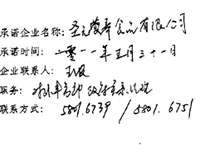 承诺企业名称：圣元营养食品有限公司
承诺时间：二〇一一年五月三十一日
企业联系人：
职务：
联系方式：5801.6739 / 5801.6751